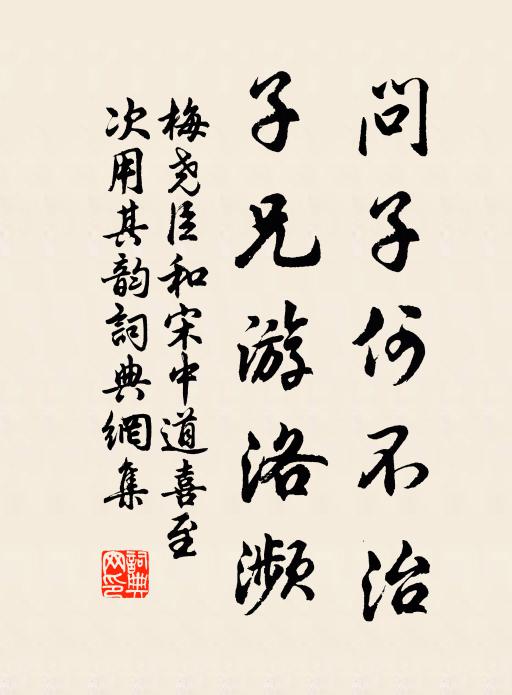 問子何不治
子兄游洛瀕
梅堯臣和宋中道喜至
次用其韵詞典網集
詞典
网印